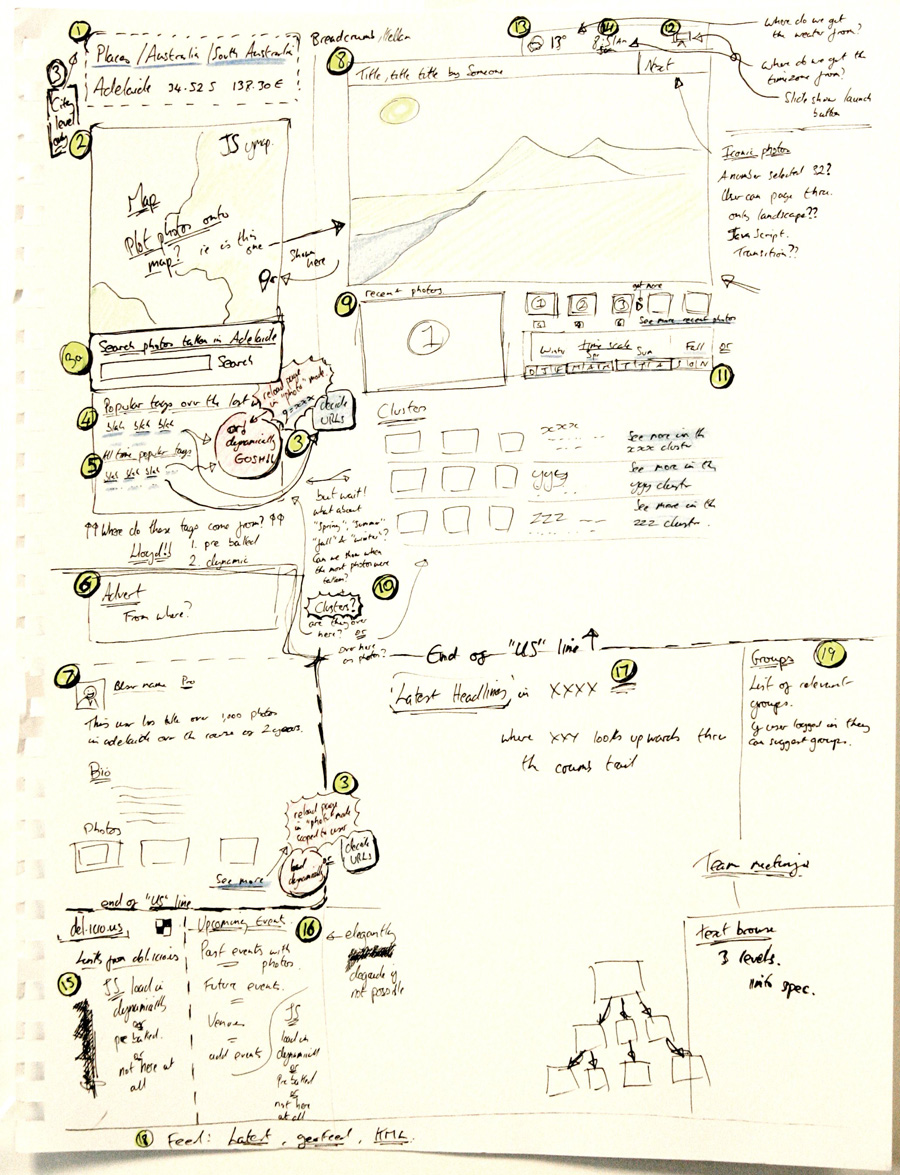 1
Places / Australia / South Australia
Adelaide 34.52 S 138.30 E
3
City level only
Breadcrumbs,
13
13°
14
12
Where do we get
the weather from?
Where do we get the
timezone from?
Slide show launch
button
8
Title, title title by Someone
Next
2
JS ymap.
Map
Plot photos onto
map? ie is this
one
Shown
here
or
Iconic photos
A number selected 32?
User can page thru.
only landscape??
JavaScript.
Transition??
9
recent photos.
1
1 2 3
get more
See more recent photos
time scale
Winter Spr Sum Fall
D J F M A M J J A S O N
or
11
3a
Search photos taken in Adelaide
Search
4
Popular tags over the last
blah blah blah
5
All time popular tags
blah blah blah
reload page
in "photo" mode.
q=xxx
or
dynamically
GOSH!L
3
decide
URLs
Cluster
xxx
See more in the
xxx cluster
yyy
See more in the
yyy cluster
zzz
See more in the
zzz cluster.
Where do these tags come from?
Lloyd!!
1. pre baked
2. dynamic
but wait!
what about
"Spring", "Summer"
"fall" & "winter"?
Can we show when
the most photos were
taken?
10
Clusters?
are they over
here? or
over here
as photos?
6
Advert
From where?
End of "US" line
7
User name Pro
This user has taken over 1,000 photos
in adelaide over the course of 2 years.
Bio
Photos
See more
3
reload page
in "photo" mode
scoped to user
or
load
dynamically
decide
URLs
end of "US" line
17
'Latest Headlines' in XXXX
where XXY looks upwards thru
the crumb trail
19
Groups
List of relevant
groups.
If user logged in they
can suggest groups.
Team meetings
Text browse
3 levels.
into spec.
del.icio.us
Links from del.icio.us
15
JS load in
dynamically
or
pre baked.
or
not here at
all
Upcoming Events.
16
Past events with
photos.
Future events.
Venues
add events
JS
load in
dynamically
or
pre baked
or
not here
at all
elegantly
degrade if
not possible
18 Feed: Latest, geofeed, KML.